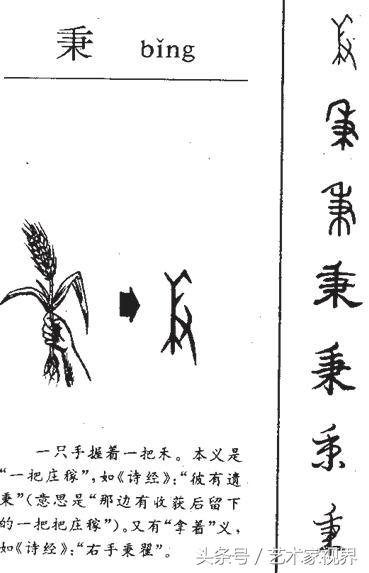 秉 bǐng
一只手握着一把禾。本义是
“一把庄稼”,如《诗经》:“彼有遗
秉”(意思是“那边有收获后留下
的一把把庄稼”)。又有“拿着”义,
如《诗经》:“右手秉翟”。
秉
秉
秉
秉
秉
秉
秉
头条号 / 艺术家视界